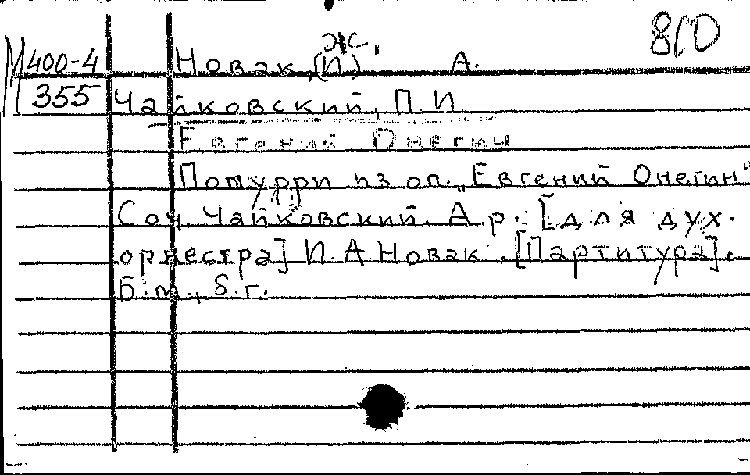 ж.
8/0
М400-4 Новак, (И) А.
355 Чайковский, П. И
Евгений Онегин
Попурри из оп. „Евгений Онегин"
Соч. Чайковский. Ар. [для дух.
оркестра] И. А Новак. [Партитура].
Б.м., б.г.